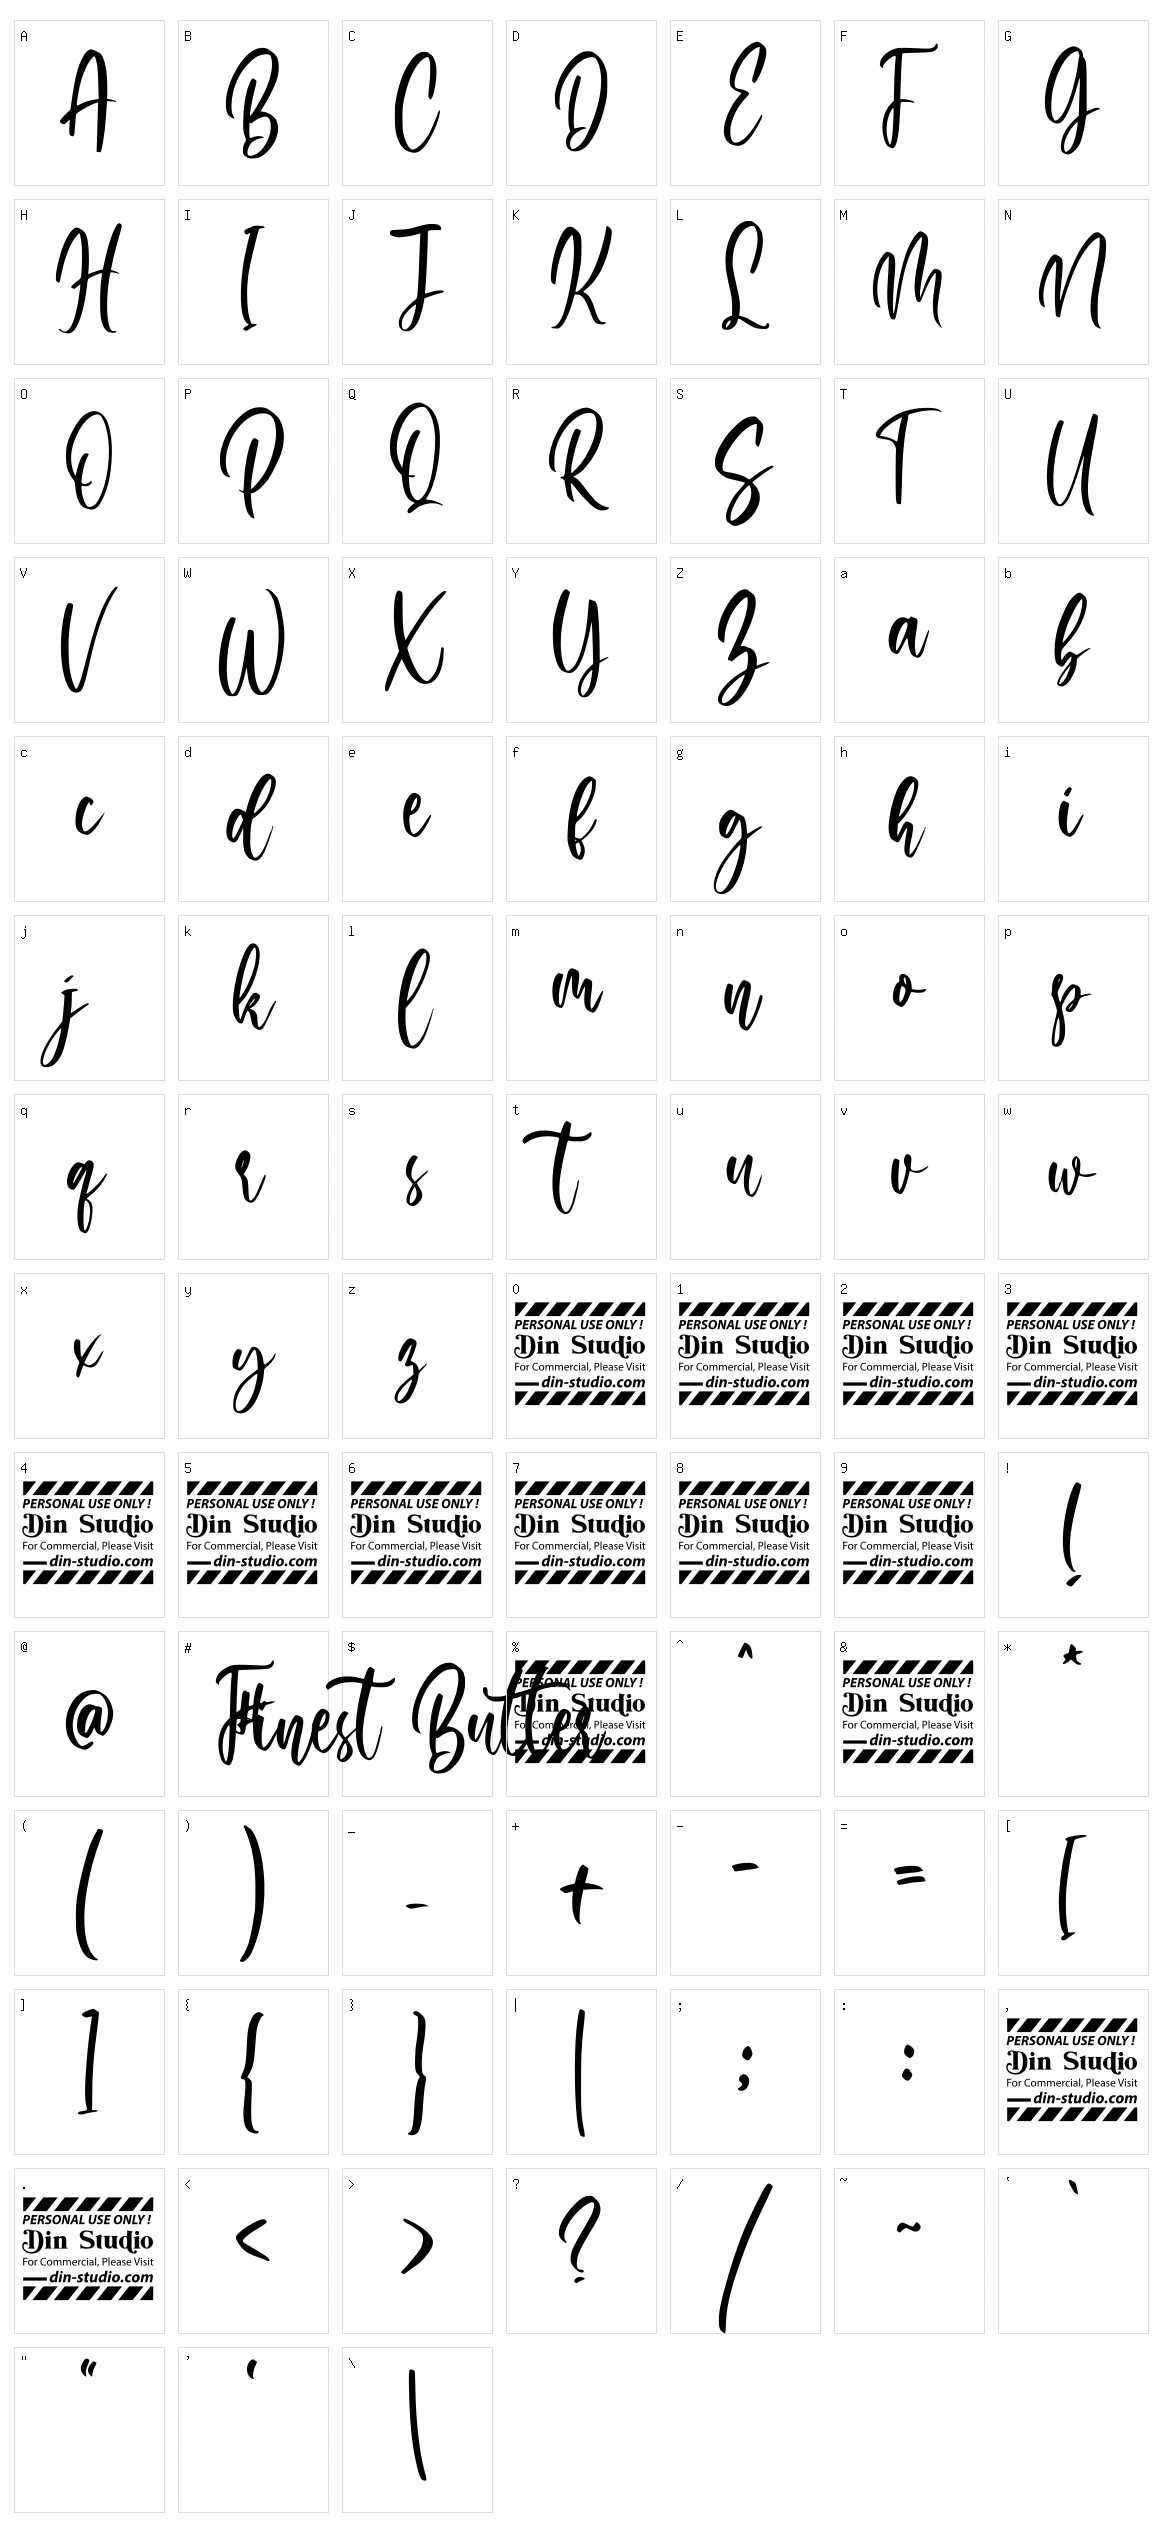 A B C D E F G
A B C D E F G
H I J K L M N
H I J K L M N
O P Q R S T U
O P Q R S T U
V W X Y Z a b
V W X Y Z a b
c d e f g h i
c d e f g h i
j k l m n o p
j k l m n o p
q r s t u v w
q r s t u v w
x y z 0 1 2 3
x y z
PERSONAL USE ONLY ! PERSONAL USE ONLY ! PERSONAL USE ONLY ! PERSONAL USE ONLY !
Din Studio Din Studio Din Studio Din Studio
For Commercial, Please Visit For Commercial, Please Visit For Commercial, Please Visit For Commercial, Please Visit
din-studio.com din-studio.com din-studio.com din-studio.com
4 5 6 7 8 9 !
PERSONAL USE ONLY ! PERSONAL USE ONLY ! PERSONAL USE ONLY ! PERSONAL USE ONLY ! PERSONAL USE ONLY ! PERSONAL USE ONLY !
Din Studio Din Studio Din Studio Din Studio Din Studio Din Studio !
For Commercial, Please Visit For Commercial, Please Visit For Commercial, Please Visit For Commercial, Please Visit For Commercial, Please Visit For Commercial, Please Visit
din-studio.com din-studio.com din-studio.com din-studio.com din-studio.com din-studio.com
@ # $ % ^ & *
^ *
PERSONAL USE ONLY ! PERSONAL USE ONLY !
@ # Finest Butter Din Studio Din Studio
For Commercial, Please Visit For Commercial, Please Visit
din-studio.com din-studio.com
( ) _ + - = [
( ) _ + - = [
] { } | ; : ,
] { } | ; :
PERSONAL USE ONLY !
Din Studio
For Commercial, Please Visit
din-studio.com
. < > ? / ~ ‛
PERSONAL USE ONLY !
Din Studio
For Commercial, Please Visit
din-studio.com
< > ? / ~ `
" ' \
" ' \